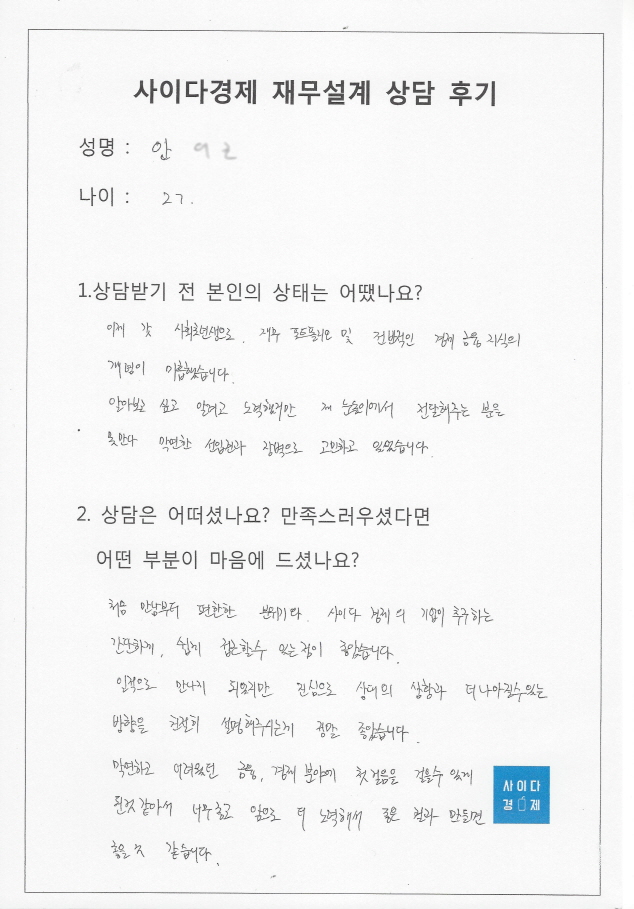 사이다경제 재무설계 상담 후기
성명 : 안
나이 : 27.
1.상담받기 전 본인의 상태는 어땠나요?
이제 갓 사회초년생으로, 재무 포트폴리오 및 전반적인 경제 금융 지식의
개념이 미흡했습니다.
알아보고 싶고 알려고 노력했지만 제 눈높이에서 전달해주는 분을
못만나 막연한 선입견과 장벽으로 고민하고 있었습니다.
2. 상담은 어떠셨나요? 만족스러우셨다면
어떤 부분이 마음에 드셨나요?
처음 만남부터 편안한 분위기와. 사이다 경제의 기업이 추구하는
간단하게, 쉽게 접근할수 있는점이 좋았습니다.
만나지 되었지만 진심으로 상대의 상황과 더 나아질수있는
방향을 친절히 설명해주시는게 정말 좋았습니다.
막연하고 어려웠던 금융, 경제 분야에 첫 걸음을 걸을수 있게
된것 같아서 너무 좋고 앞으로 더 노력해서 좋은 결과 만들면
좋을 것 같습니다.
사이다
경제